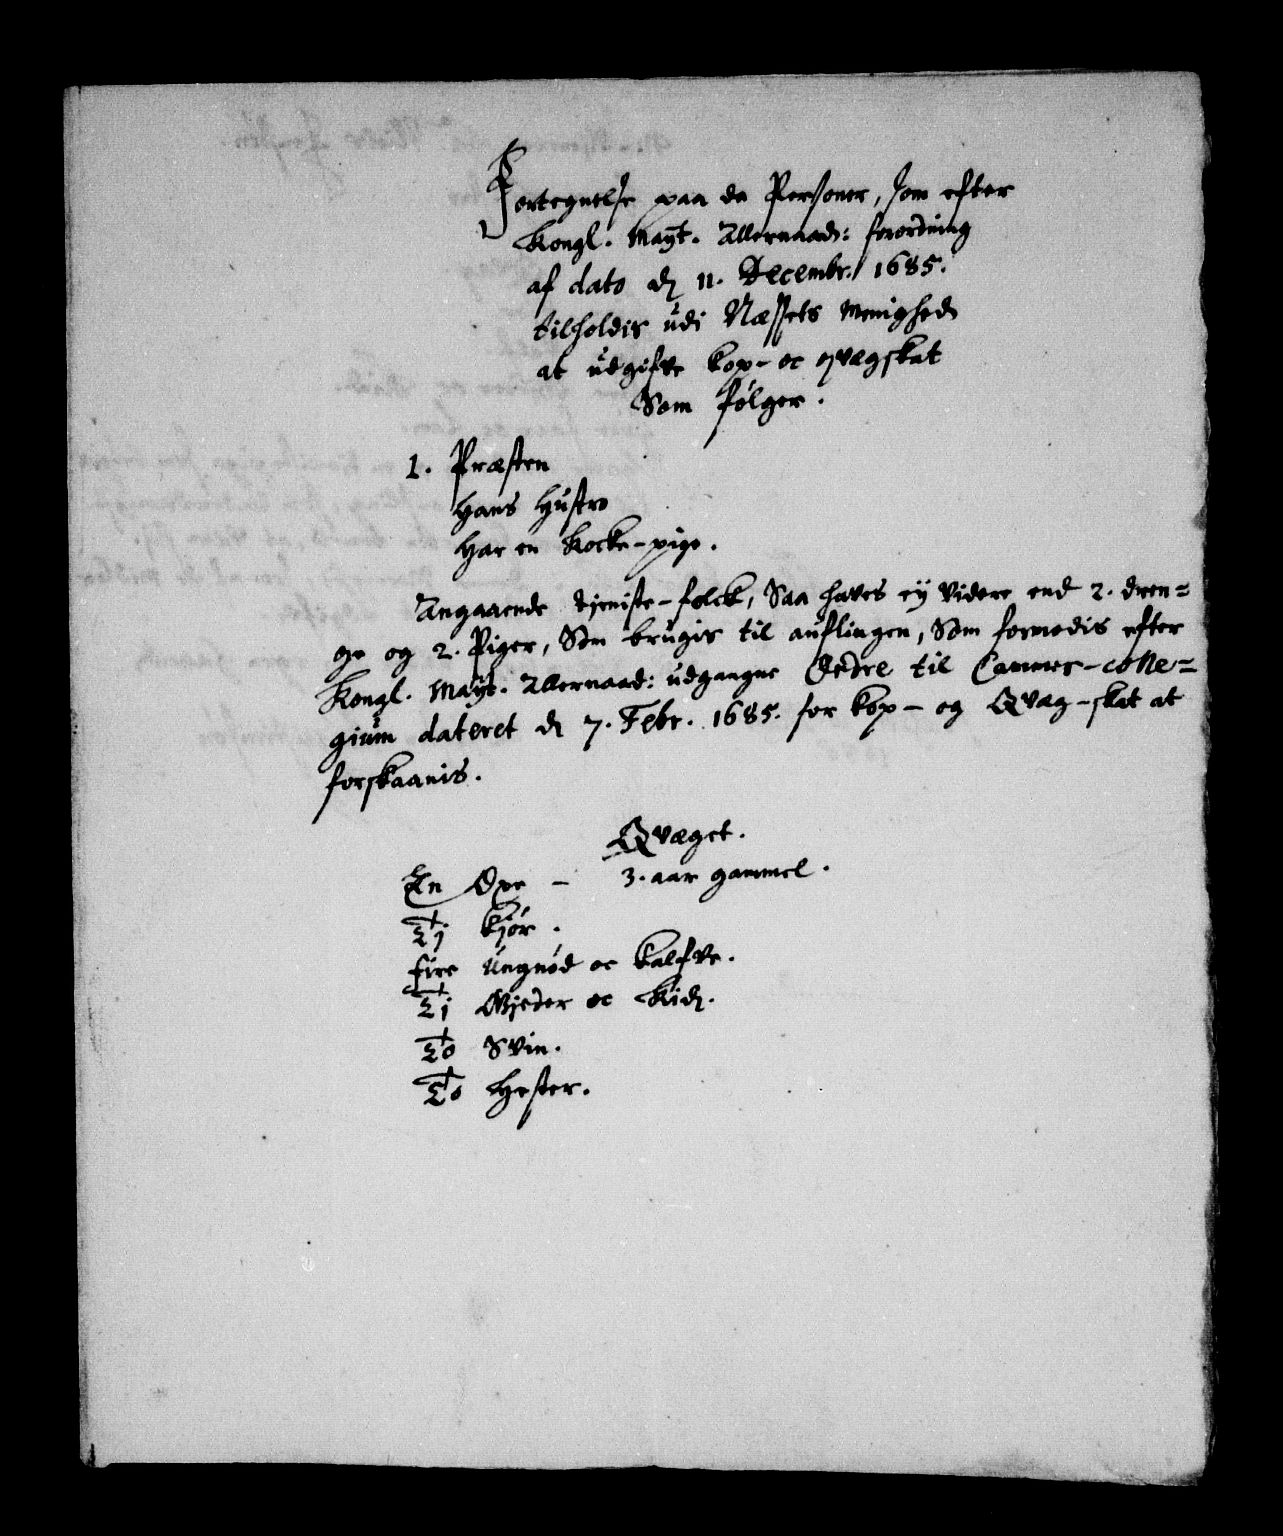 Fortegnelse paa de Personer, som efter
Kongl. Mayt. Allernaad: forordning
af dato d. 11. Decembr. 1685.
tilholdis udi Næssets Menighed
at udgifve kop- oc qvægskat
Som følger.
1. Præsten
hans Hustro
har en Kocke-pige.
Angaaende tjeniste-folck, Saa haves ey videre end 2. dren=
ge og 2. Piger, Som brugis til auflingen, Som formodis efter
Kongl. Mayt. Allernaad: udgangne Ordre til Cammer-colle=
gium dateret d. 7. Febr. 1685. for kop- og Qvæg-skat at
forskaanis.
Qvæget.
En Oxe - 3. aar gammel.
Tj kjør.
fire Ungnød oc kalfve.
Tj Gjeder oc Kid.
To Svin.
To Hester.